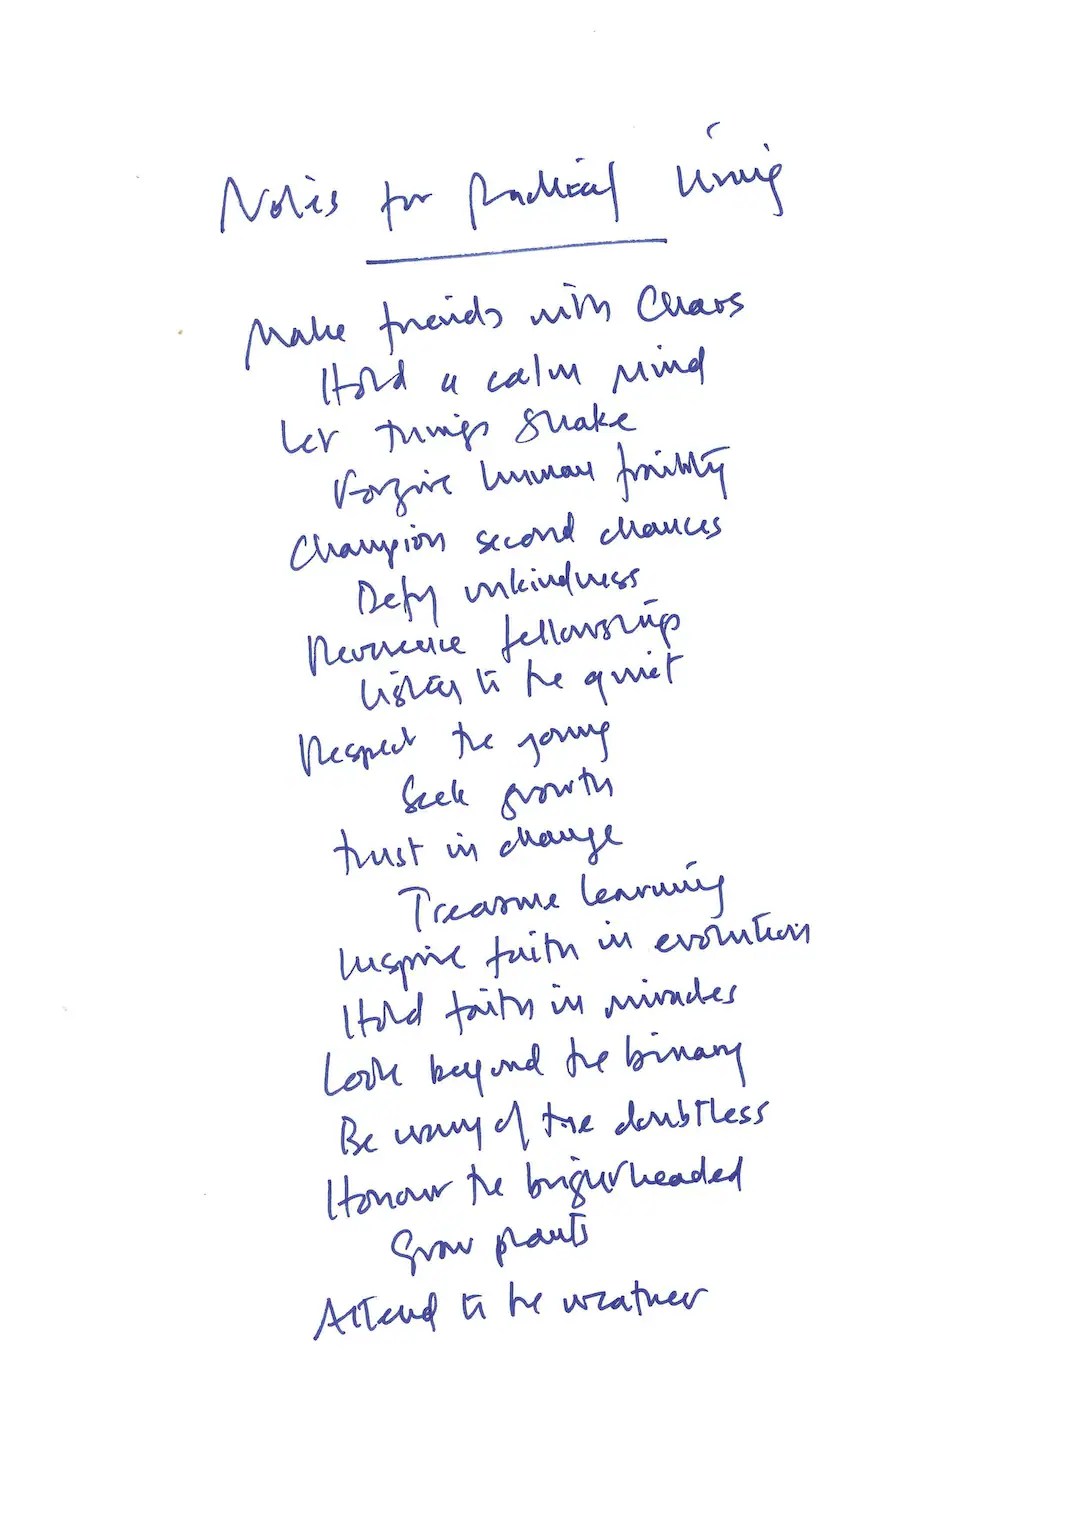 Notes for Radical Living
Make friends with Chaos
Hold a calm mind
Let things shake
Forgive human frailty
Champion second chances
Defy unkindness
Reverence fellowship
Listen to the quiet
Respect the young
Seek growth
Trust in change
Treasure learning
Inspire faith in evolution
Hold faith in miracles
Look beyond the binary
Be wary of the doubtless
Honour the bigheaded
Grow plants
Attend to the weather